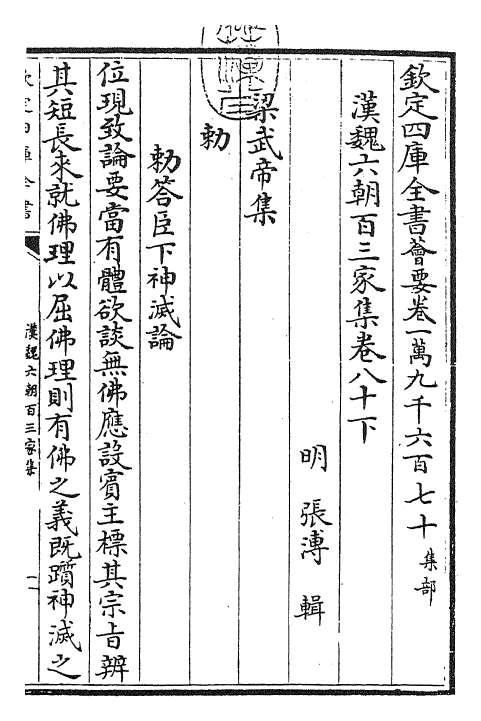 欽定四庫全書薈要卷一萬九千六百七十 集部
漢魏六朝百三家集卷八十下
明 張溥 輯
梁武帝集
勅
勅答臣下神滅論
位現致論要當有體欲談無佛應設賓主標其宗㫖辨
其短長來就佛理以屈佛理則有佛之義既躓神滅之
欽定四庫全書
漢魏六朝百三家集
一